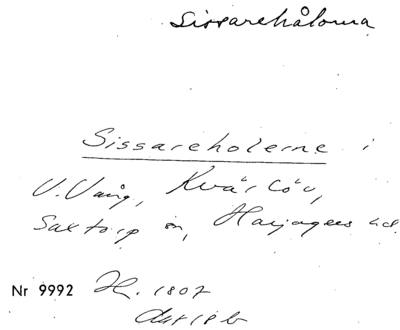 Sissarehålorna
Sissareholerne i
V. Vång, Kvärlöv,
Saxtorp sn, Harjagers hd.
Nr 9992 H. 1807